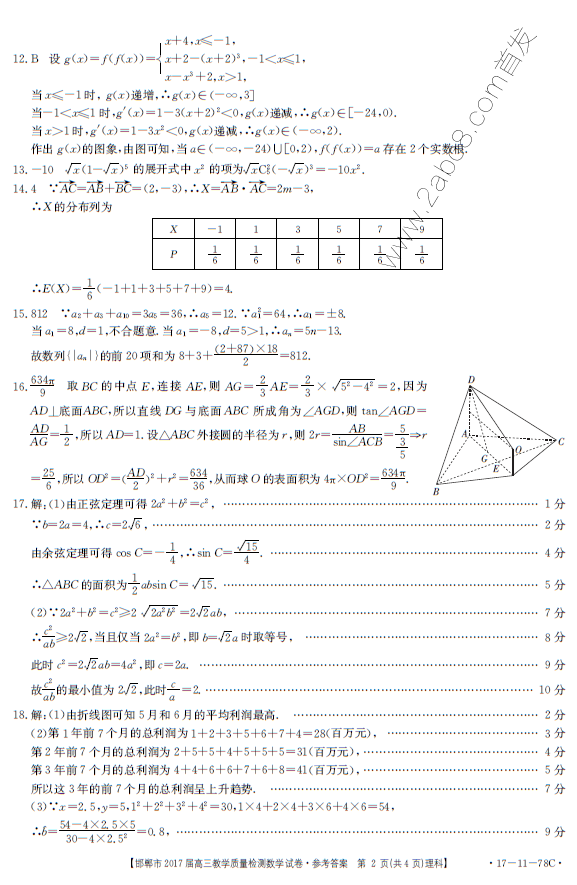 12. B 设 g(x)=f(f(x))={x+4,x≤-1,
x+2-(x+2)³,-1<x≤1,
x-x³+2,x>1,
当x≤-1时, g(x)递增,∴g(x)∈(-∞,3]
当-1<x≤1时,g′(x)=1-3(x+2)²<0,g(x)递减,∴g(x)∈[-24,0).
当x>1时,g′(x)=1-3x²<0,g(x)递减,∴g(x)∈(-∞,2).
作出 g(x)的图象,由图可知,当 a∈(-∞,-24)∪[0,2),f(f(x))=a 存在 2 个实数根.
13. -10 √x(1-√x)⁵ 的展开式中 x² 的项为√xC₅³(-√x)³=-10x².
14. 4 ∵AC=AB+BC=(2,-3),∴X=AB·AC=2m-3,
∴X的分布列为
X -1 1 3 5 7 9
P 1/6 1/6 1/6 1/6 1/6 1/6
∴E(X)=1/6(-1+1+3+5+7+9)=4.
15. 812 ∵a₂+a₃+a₁₀=3a₅=36,∴a₅=12. ∵a₁²=64,∴a₁=±8.
当 a₁=8,d=1,不合题意. 当 a₁=-8,d=5>1,∴aₙ=5n-13.
故数列{|aₙ|}的前 20 项和为 8+3+(2+87)×18/2=812.
16. 634π/9 取 BC 的中点 E,连接 AE,则 AG=2/3AE=2/3×√5²-4²=2,因为
AD⊥底面ABC,所以直线 DG 与底面 ABC 所成角为∠AGD,则 tan∠AGD=
AD/AG=1/2,所以 AD=1. 设△ABC 外接圆的半径为 r,则 2r=AB/sin∠ACB=5/(3/5)⇒r
=25/6,所以 OD²=(AD/2)²+r²=634/36,从而球 O 的表面积为 4π×OD²=634π/9.
D
A
C
G
O
E
B
17. 解:(1)由正弦定理可得 2a²+b²=c², 1 分
∵b=2a=4,∴c=2√6, 2 分
由余弦定理可得 cos C=-1/4,∴sin C=√15/4. 4 分
∴△ABC 的面积为1/2absin C=√15. 5 分
(2)∵2a²+b²=c²≥2√2a²b²=2√2ab, 7 分
∴c²/ab≥2√2,当且仅当 2a²=b²,即 b=√2a 时取等号, 8 分
此时 c²=2√2ab=4a²,即 c=2a. 9 分
故c²/ab的最小值为 2√2,此时c/a=2. 10 分
18. 解:(1)由折线图可知 5 月和 6 月的平均利润最高. 2 分
(2)第 1 年前 7 个月的总利润为 1+2+3+5+6+7+4=28(百万元), 3 分
第 2 年前 7 个月的总利润为 2+5+5+4+5+5+5=31(百万元), 4 分
第 3 年前 7 个月的总利润为 4+4+6+6+7+6+8=41(百万元), 5 分
所以这 3 年的前 7 个月的总利润呈上升趋势. 7 分
(3)∵x=2.5,y=5,1²+2²+3²+4²=30,1×4+2×4+3×6+4×6=54,
∴b̂=54-4×2.5×5/30-4×2.5²=0.8, 9 分
【邯郸市 2017 届高三教学质量检测数学试卷·参考答案 第 2 页(共 4 页)理科】
·17-11-78C·
www.2abc8.com首发